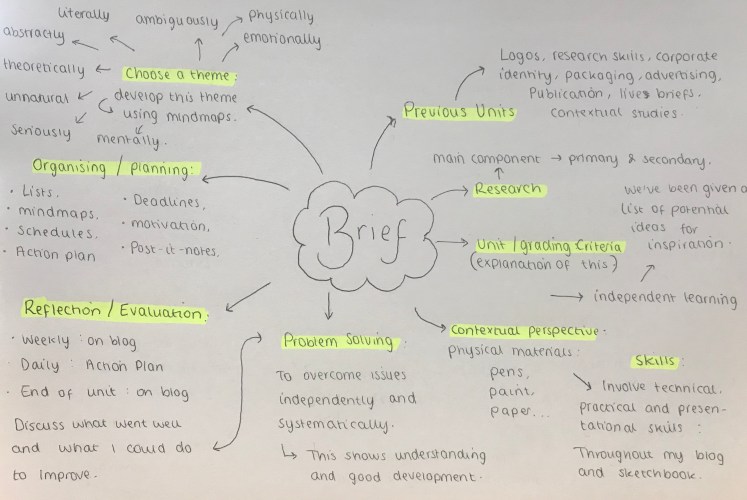 literally
ambiguously
physically
emotionally
abstractly
theoretically
Choose a theme:
unnatural
develop this theme
using mindmaps.
seriously
mentally.
Previous Units
Logos, research skills, corporate
identity, packaging, advertising,
Publication, lives briefs.
contextual studies.
Organising / planning:
· Lists,
· mindmaps,
· schedules,
· Action plan
· Deadlines,
· motivation,
· Post-it-notes,
Brief
main component → primary & secondary.
Research
Unit / grading Criteria
(explanation of this)
we've been given a
list of potential
ideas for
inspiration.
→ independent learning
Reflection / Evaluation:
· Weekly : on blog
· Daily : Action Plan
· End of unit : on blog
Discuss what went well
and what I could do
to improve.
Problem Solving.
To overcome issues
independently and
systematically.
↳ This shows understanding
and good development.
Contextual perspective.
Physical materials:
pens,
paint,
paper...
Skills:
Involve technical,
practical and presen-
tational skills :
Throughout my blog
and sketchbook.